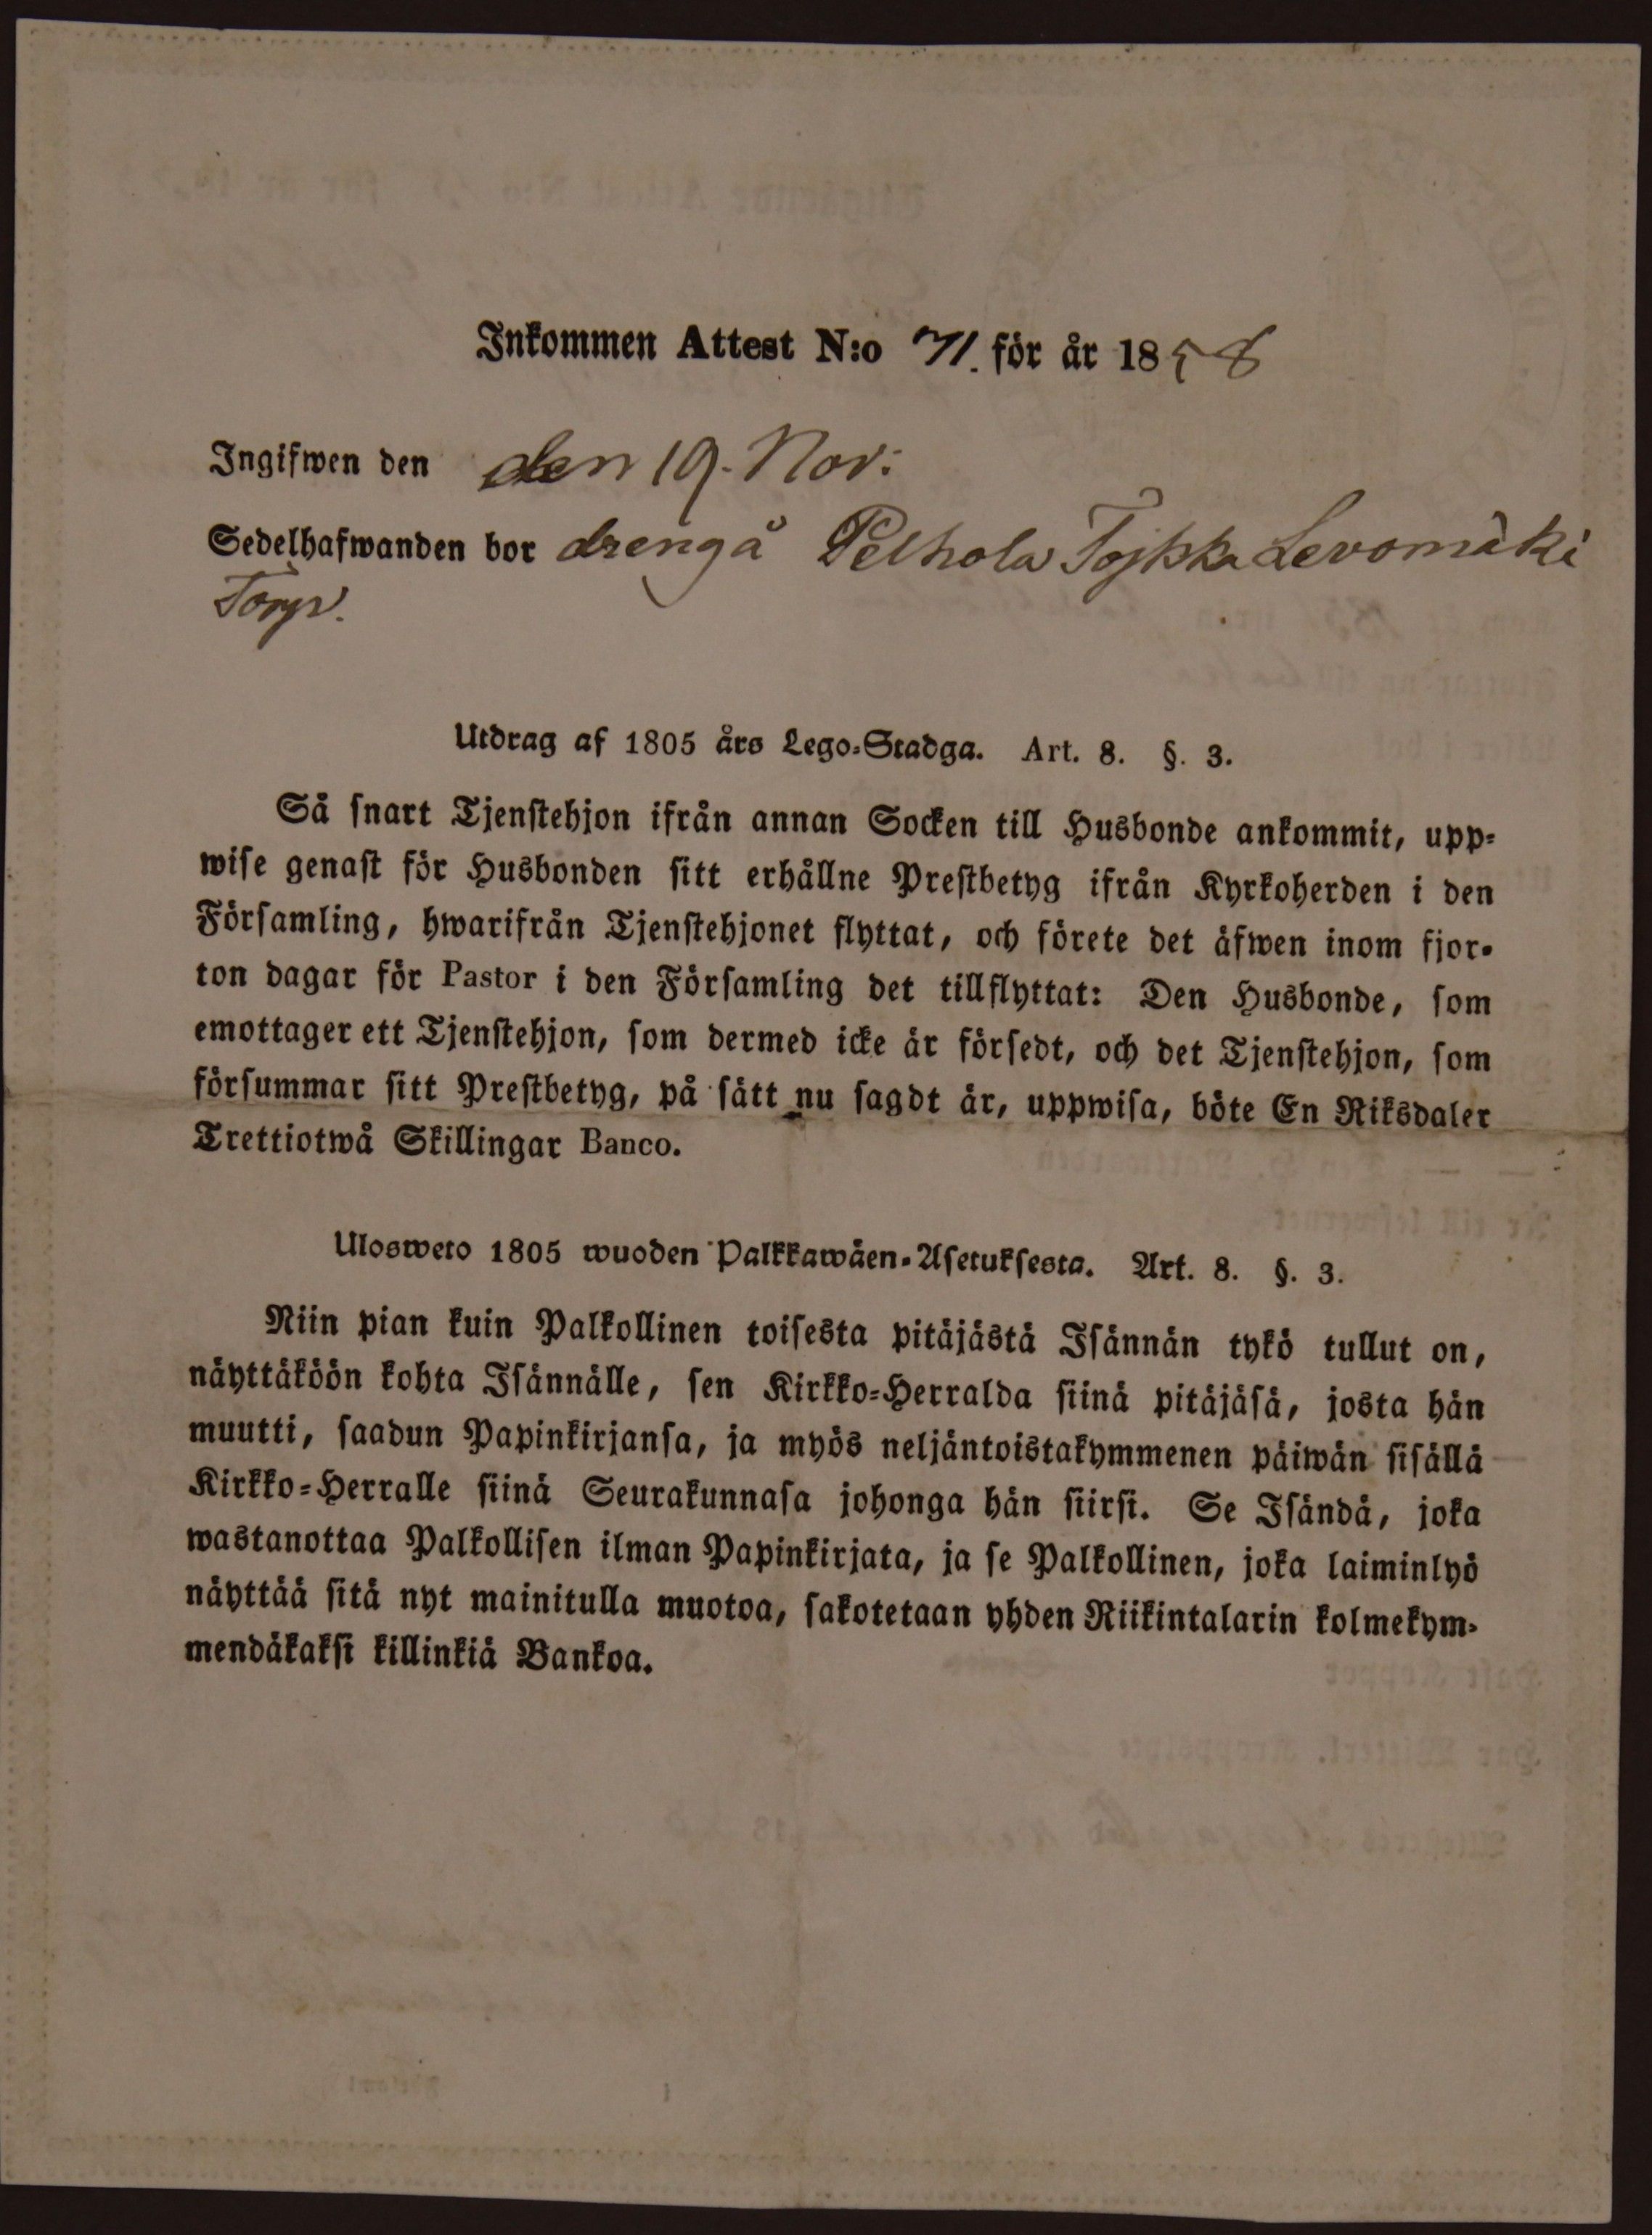 Inkommen Attest N:o 71. för år 1858
Ingifwen den den 19. Nov:
Sedelhafwanden bor dreng å Pelhola Levomäki
Torp.
Utdrag af 1805 års Lego-Stadga. Art. 8. §. 3.
Så snart Tjenstehjon ifrån annan Socken till Husbonde ankommit, upp-
wise genast för Husbonden sitt erhållne Prestbetyg ifrån Kyrkoherden i den
Församling, hwarifrån Tjenstehjonet flyttat, och förete det äfwen inom fjor-
ton dagar för Pastor i den Församling det tillflyttat: Den Husbonde, som
emottager ett Tjenstehjon, som dermed icke är försedt, och det Tjenstehjon, som
försummar sitt Prestbetyg, på sätt nu sagdt är, uppwisa, böte En Riksdaler
Trettiotwå Skillingar Banco.
Ulosweto 1805 wuoden Palkkawäen-Asetuksesta. Art. 8. §. 3.
Niin pian kuin Palkollinen toisesta pitäjästä Isännän tykö tullut on,
näyttäköön kohta Isännälle, sen Kirkko-Herralda siinä pitäjäsä, josta hän
muutti, saadun Papinkirjansa, ja myös neljäntoistakymmenen päiwän sisällä
Kirkko-Herralle siinä Seurakunnasa johonga hän siirsi. Se Isändä, joka
wastanottaa Palkollisen ilman Papinkirjata, ja se Palkollinen, joka laiminlyö
näyttää sitä nyt mainitulla muotoa, sakotetaan yhden Riikintalarin kolmekym-
mendäkaksi killinkiä Bankoa.